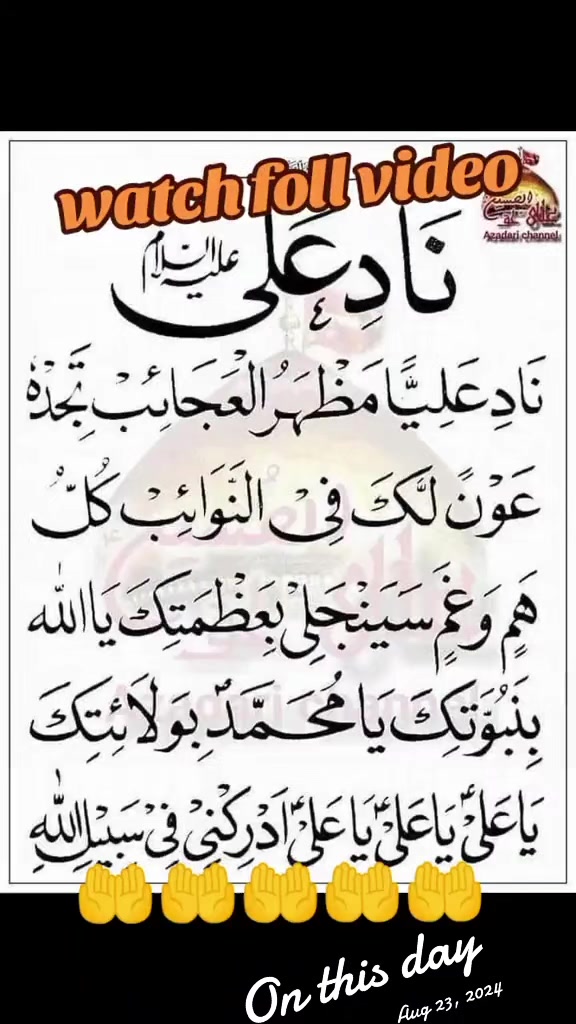 watch foll video
Azadari channel
نَادِ عَلی علیہ السلام
نَادِ عَلِيًّا مَظْهَرُ الْعَجَائِبْ تَجِدْهُ
عَوْنً لَّكَ فِیْ النَّوَائِبْ كُلّ
هَمٍ وَغَمٍ سَيَنْجَلِیْ بِعَظْمَتِكَ يَا اللّٰه
بِنَبُوَّتِكَ يَا مُحَمَّدْ بِوِلَائِتِكَ
يَا عَلیْ يَا عَلیْ يَا عَلیْ اَدْرِكْنِیْ فِیْ سَبِيْلِ اللّٰهِ
Azadari channel
🤲🤲🤲🤲🤲
On this day
Aug 23, 2024